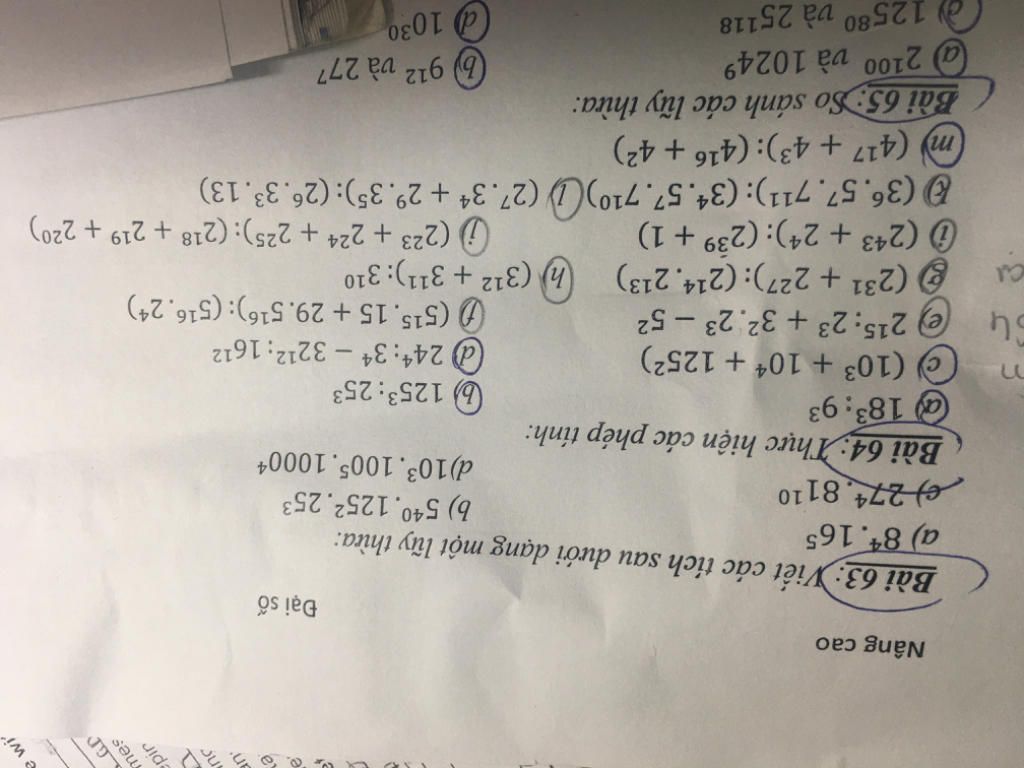 Nâng cao
Đại số
Bài 63: Viết các tích sau dưới dạng một lũy thừa:
a) 8⁴. 16⁵ b) 5⁴⁰. 125². 25³
c) 27⁴. 81¹⁰ d)10³. 100⁵. 1000⁴
Bài 64: Thực hiện các phép tính:
a) 18³: 9³ b) 125³: 25³
c) (10³ + 10⁴ + 125²) d) 24⁴: 3⁴ − 32¹²: 16¹²
e) 2¹⁵: 2³ + 3². 2³ − 5² f) (5¹⁵. 15 + 29. 5¹⁶): (5¹⁶. 2⁴)
g) (2³¹ + 2²⁷): (2¹⁴. 2¹³) h) (3¹² + 3¹¹): 3¹⁰
i) (2⁴³ + 2⁴): (2³⁹ + 1) j) (2²³ + 2²⁴ + 2²⁵): (2¹⁸ + 2¹⁹ + 2²⁰)
k) (3⁶. 5⁷. 7¹¹): (3⁴. 5⁷. 7¹⁰) l) (2⁷. 3⁴ + 2⁹. 3⁵): (2⁶. 3³. 13)
m) (4¹⁷ + 4³): (4¹⁶ + 4²)
Bài 65: So sánh các lũy thừa:
a) 2¹⁰⁰ và 1024⁹ b) 9¹² và 27⁷
c) 125⁸⁰ và 25¹¹⁸ d) 10³⁰